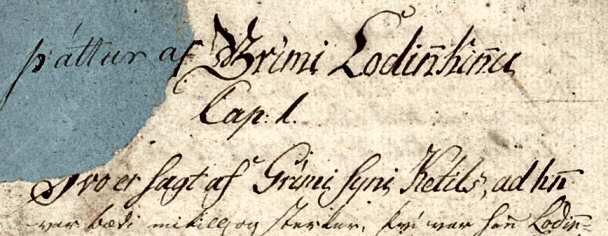 þáttur af Grími Lodin̄kin̄a
Cap. 1.
Svo er sagt af Grími syni Ketils, ad hn̄
var bædi mikill og sterkur, því var han̄ Lodin̄=